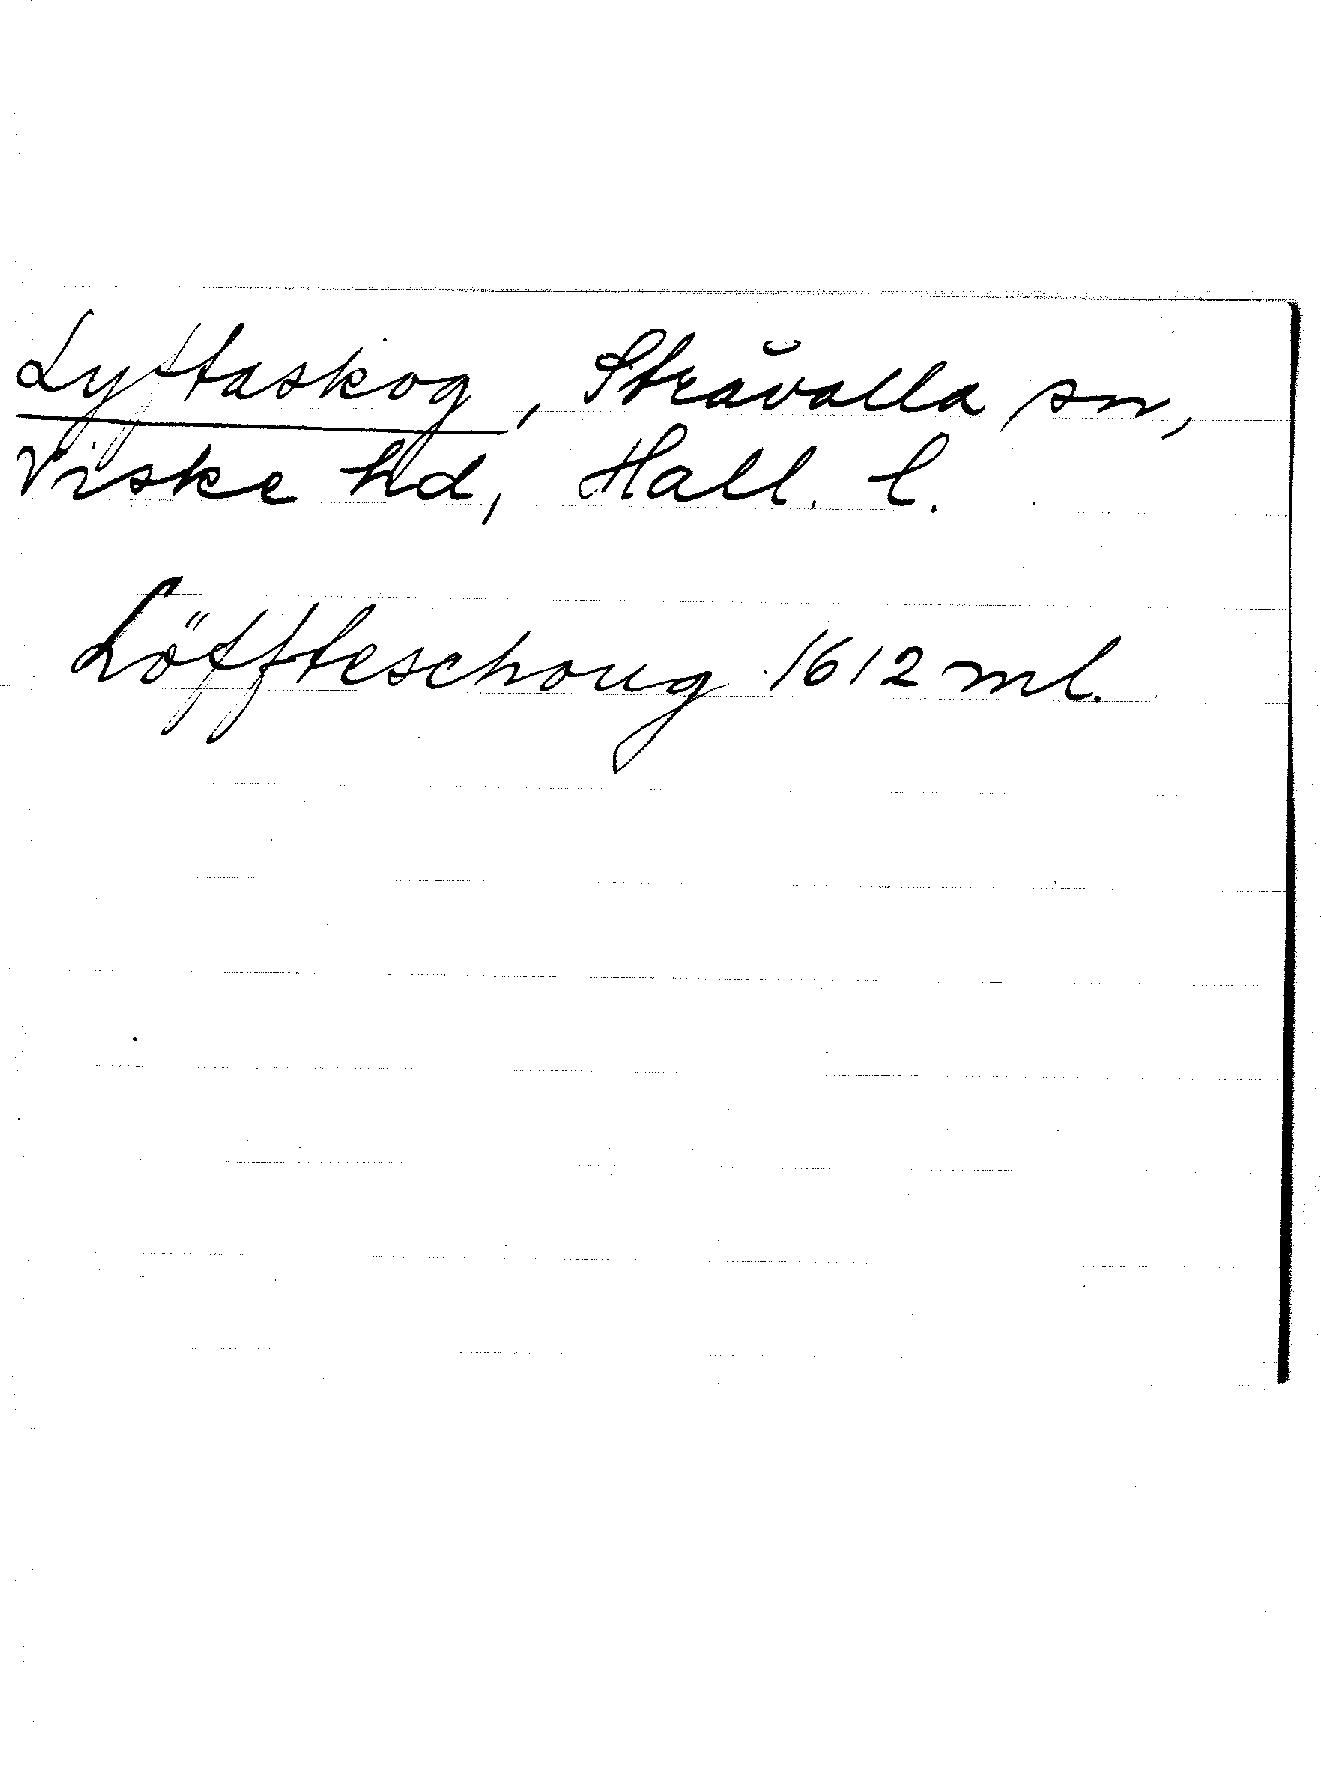 Lyftaskog, Stråvalla sn,
Viske hd, Hall. l.
Löffteschoug 1612 ml.